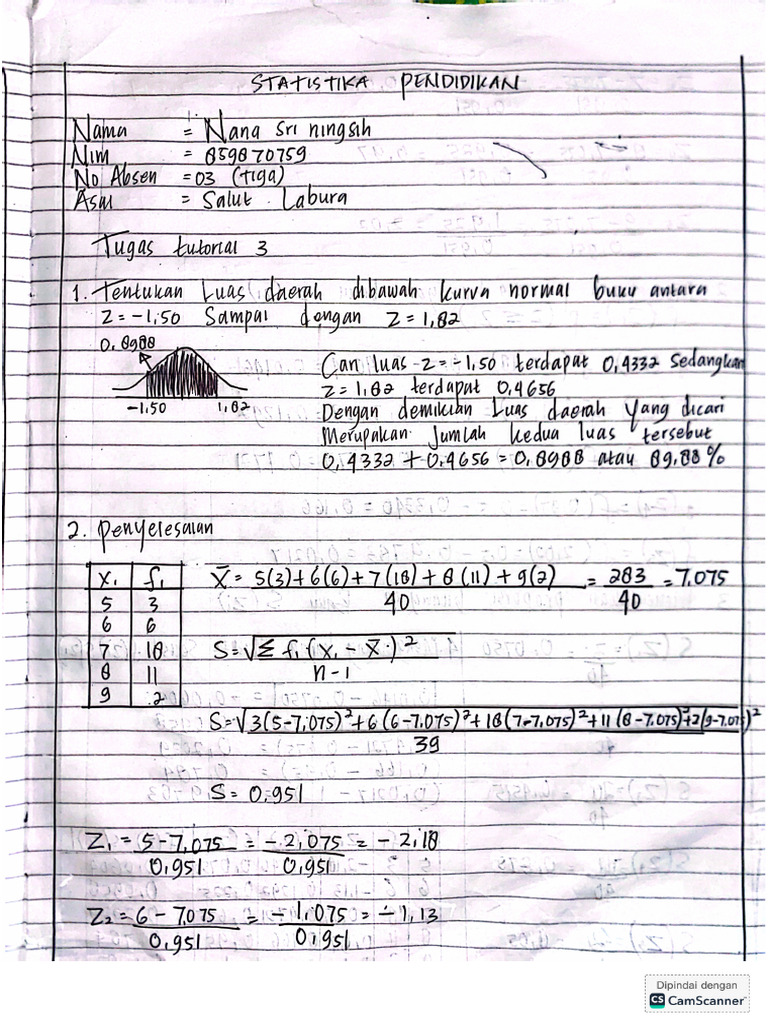 STATISTIKA PENDIDIKAN
Nama = Nana Sri ningsih
Nim = 859870759
No Absen = 03 (tiga)
Asal = Salut Labura
Tugas tutorial 3
1. Tentukan Luas daerah dibawah kurva normal buku antara
Z = -1,50 Sampai dengan Z = 1,82
0.8988
-1,50 1,82
Cari luas -z = -1,50 terdapat 0,4332 Sedangkan
Z = 1,82 terdapat 0,4656
Dengan demikian Luas daerah yang dicari
Merupakan Jumlah kedua luas tersebut
0,4332 + 0.4656 = 0,8988 atau 89,88%
2. Penyelesaian
X₁ f₁
5 3
6 6
7 18
8 11
9 2
X̄ = 5(3)+6(6)+7(18)+8(11)+9(2) / 40 = 283 / 40 = 7.075
S = √Σ f₁ (X₁ - X̄)² / n-1
S = √3(5-7,075)²+6(6-7,075)²+18(7-7,075)²+11(8-7,075)²+2(9-7,075)² / 39
S = 0.951
Z₁ = 5-7,075 / 0,951 = -2,075 / 0,951 = -2,18
Z₂ = 6-7,075 / 0,951 = -1,075 / 0,951 = -1,13
Dipindai dengan
CS CamScanner